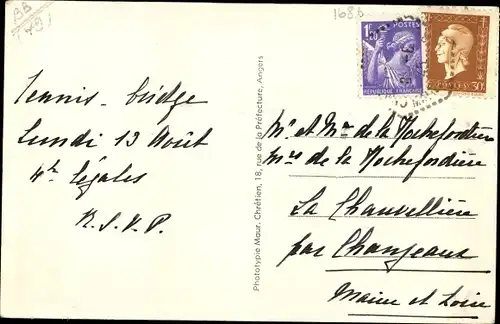 BB
1688
Tennis - bridge
Lundi 13 Août
4h légales
R.S.V.P.
Phototypie Maur. Chrétien, 18, rue de la Préfecture, Angers
1F20 POSTES
RÉPUBLIQUE FRANÇAISE
POSTES 30c
Mr et Mme de la Rochefordière
Mrs de la Rochefordière
La Chauvellière
par Chanzeaux
Maine et Loire